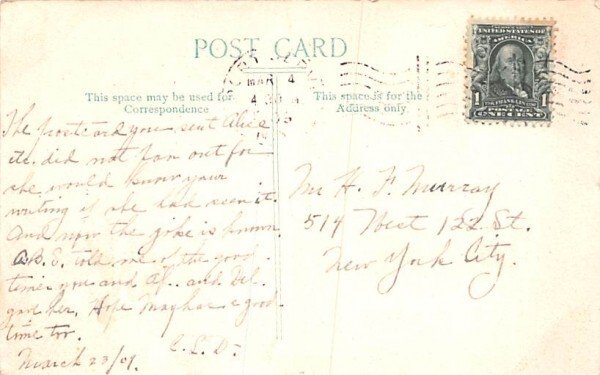 POST CARD
MAR 4
4 30
This space may be used for
Correspondence
This space is for the
Address only.
UNITED STATES OF
AMERICA
1
1
ONE CENT
The postcard you sent Alice
etc. did not pan out for
she would know your
writing if she had seen it.
And now the joke is known
B. E. told me of the good
times you and Al. and Del.
gave her. Hope May has a good
time too.
C. L. D.
March 23/09.
Mr H. F. Murray
514 West 122 St.
New York City.